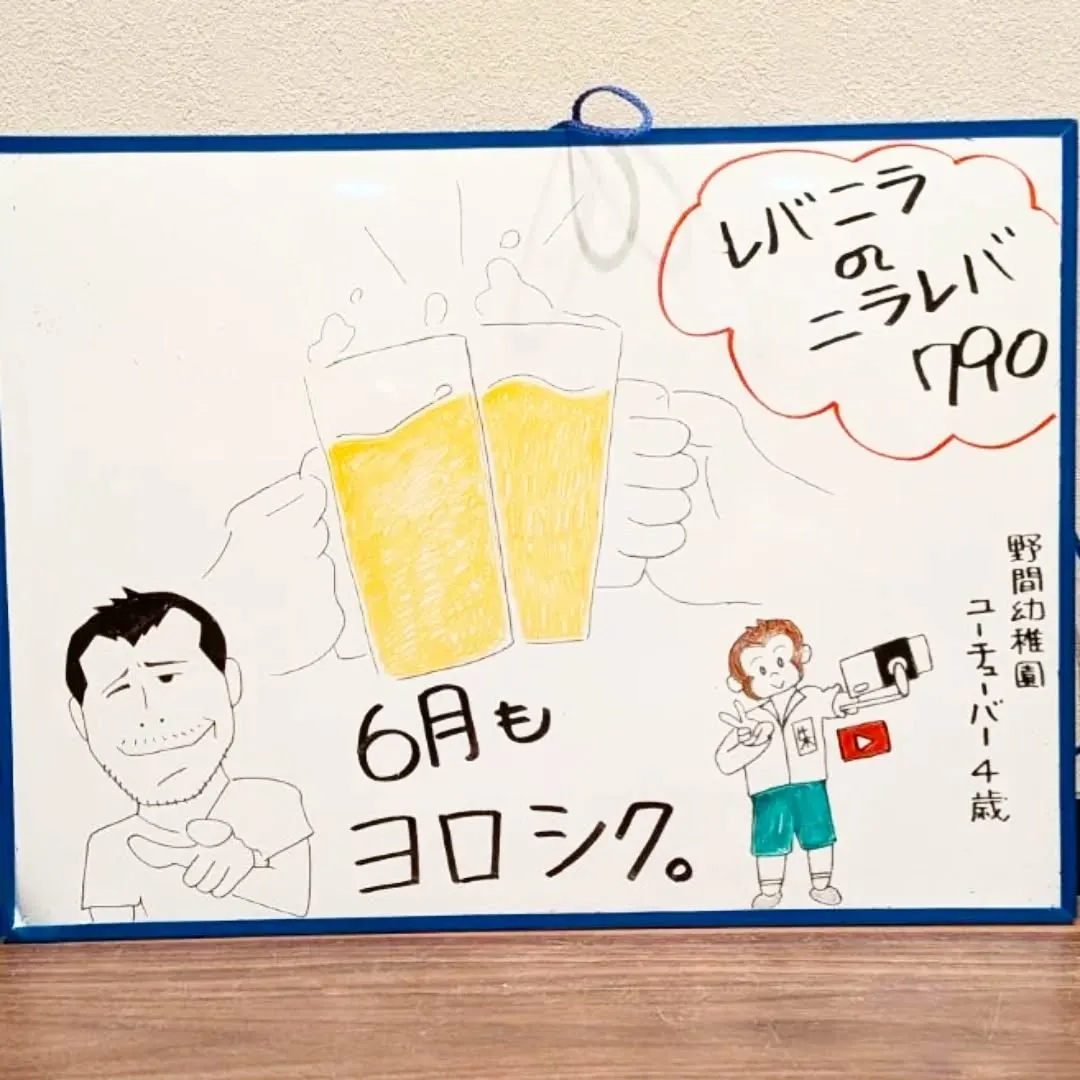 レバニラ
の
ニラレバ
790
野間幼稚園
ユーチューバー4歳
6月も
ヨロシク。
朱